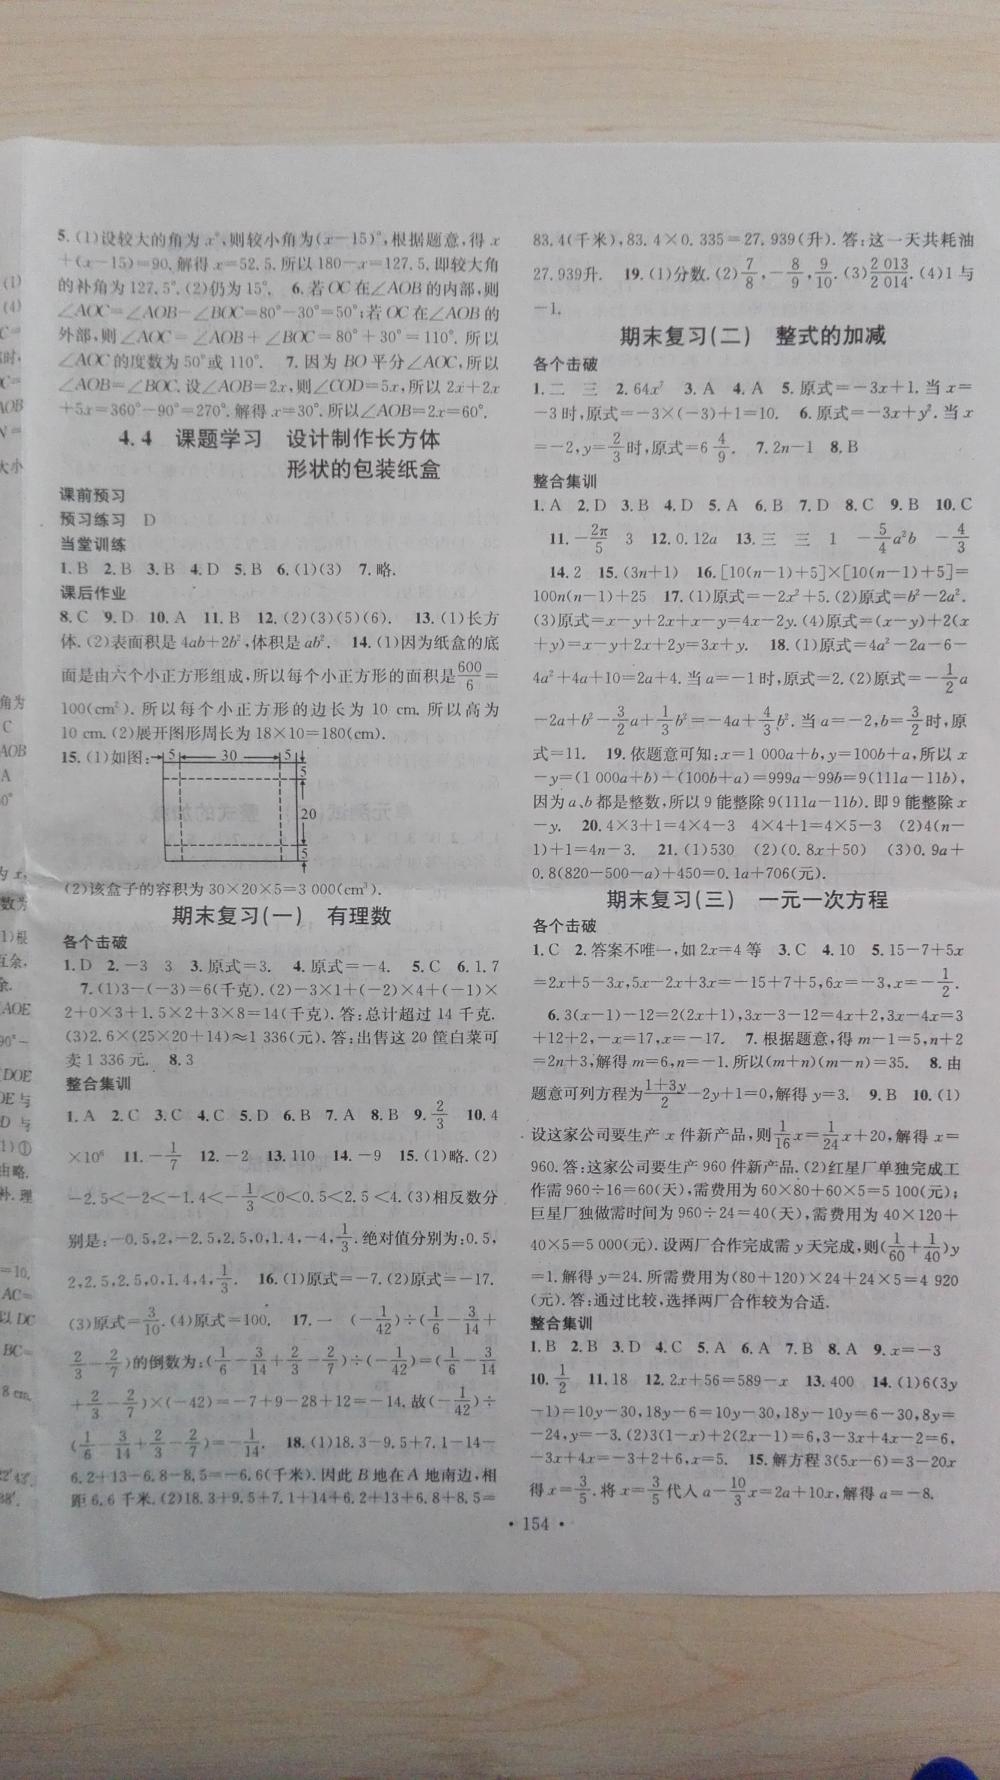 5. (1)设较大的角为x°,则较小角为(x-15)°,根据题意,得x
+(x-15)=90.解得x=52.5.所以180-x=127.5.即较大角
的补角为127.5°.(2)仍为15°. 6.若OC在∠AOB的内部,则
∠AOC=∠AOB-∠BOC=80°-30°=50°;若OC在∠AOB的
外部,则∠AOC=∠AOB+∠BOC=80°+30°=110°.所以
∠AOC的度数为50°或110°. 7.因为BO平分∠AOC,所以
∠AOB=∠BOC.设∠AOB=2x,则∠COD=5x,所以2x+2x
+5x=360°-90°=270°.解得x=30°.所以∠AOB=2x=60°.
4.4 课题学习 设计制作长方体
形状的包装纸盒
课前预习
预习练习 D
当堂训练
1.B 2.B 3.B 4.D 5.B 6.(1)(3) 7.略.
课后作业
8.C 9.D 10.A 11.B 12.(2)(3)(5)(6). 13.(1)长方
体.(2)表面积是4ab+2b²,体积是ab². 14.(1)因为纸盒的底
面是由六个小正方形组成,所以每个小正方形的面积是600/6=
100(cm²).所以每个小正方形的边长为10 cm.所以高为
10 cm.(2)展开图形周长为18×10=180(cm).
15.(1)如图: 5 30 5
5
20
5
(2)该盒子的容积为30×20×5=3 000(cm³).
期末复习(一) 有理数
各个击破
1.D 2.-3 3 3.原式=3. 4.原式=-4. 5.C 6.1.7
7.(1)3-(-3)=6(千克).(2)-3×1+(-2)×4+(-1)×
2+0×3+1.5×2+3×8=14(千克).答:总计超过14千克.
(3)2.6×(25×20+14)≈1 336(元).答:出售这20筐白菜可
卖1 336元. 8.3
整合集训
1.A 2.C 3.C 4.C 5.D 6.B 7.A 8.B 9.2/3 10.4
×10⁶ 11.-1/7 12.-2 13.110 14.-9 15.(1)略.(2)
-2.5<-2<-1.4<-1/3<0<0.5<2.5<4.(3)相反数分
别是:-0.5,2,-2.5,2.5,0,1.4,-4,1/3.绝对值分别为:0.5,
2,2.5,2.5,0,1.4,4,1/3. 16.(1)原式=-7.(2)原式=-17.
(3)原式=3/10.(4)原式=100. 17.一 (-1/42)÷(1/6-3/14+
2/3-2/7)的倒数为:(1/6-3/14+2/3-2/7)÷(-1/42)=(1/6-3/14
+2/3-2/7)×(-42)=-7+9-28+12=-14.故(-1/42)÷
(1/6-3/14+2/3-2/7)=-1/14. 18.(1)18.3-9.5+7.1-14-
6.2+13-6.8-8.5=-6.6(千米).因此B地在A地南边,相
距6.6千米.(2)18.3+9.5+7.1+14+6.2+13+6.8+8.5=
83.4(千米),83.4×0.335=27.939(升).答:这一天共耗油
27.939升. 19.(1)分数.(2)7/8,-8/9,9/10.(3)2 013/2 014.(4)1与
-1.
期末复习(二) 整式的加减
各个击破
1.二 三 2.64x⁷ 3.A 4.A 5.原式=-3x+1.当x=
-3时,原式=-3×(-3)+1=10. 6.原式=-3x+y².当x
=-2,y=2/3时,原式=6 4/9. 7.2n-1 8.B
整合集训
1.A 2.D 3.B 4.D 5.A 6.B 7.D 8.C 9.B 10.C
11.-2π/5 3 12.0.12a 13.三 三 1 -5/4a²b -4/3
14.2 15.(3n+1) 16.[10(n-1)+5]×[10(n-1)+5]=
100n(n-1)+25 17.(1)原式=-2x²+5.(2)原式=b²-2a².
(3)原式=x-y+2x+x-y=4x-2y.(4)原式=(x-y)+2(x
+y)=x-y+2x+2y=3x+y. 18.(1)原式=4a²-2a-6-
4a²+4a+10=2a+4.当a=-1时,原式=2.(2)原式=-1/2a
-2a+b²-3/2a+1/3b²=-4a+4/3b².当a=-2,b=3/2时,原
式=11. 19.依题意可知:x=1 000a+b,y=100b+a,所以x
-y=(1 000a+b)-(100b+a)=999a-99b=9(111a-11b),
因为a、b都是整数,所以9能整除9(111a-11b).即9能整除x
-y. 20.4×3+1=4×4-3 4×4+1=4×5-3 (2)4(n-
1)+1=4n-3. 21.(1)530 (2)(0.8x+50) (3)0.9a+
0.8(820-500-a)+450=0.1a+706(元).
期末复习(三) 一元一次方程
各个击破
1.C 2.答案不唯一,如2x=4等 3.C 4.10 5.15-7+5x
=2x+5-3x,5x-2x+3x=-15+7+5,6x=-3,x=-1/2.
6.3(x-1)-12=2(2x+1),3x-3-12=4x+2,3x-4x=3
+12+2,-x=17,x=-17. 7.根据题意,得m-1=5,n+2
=2n+3,解得m=6,n=-1.所以(m+n)(m-n)=35. 8.由
题意可列方程为1+3y/2-2y+1=0,解得y=3. 9.B 10.(1)
设这家公司要生产x件新产品,则1/16x=1/24x+20,解得x=
960.答:这家公司要生产960件新产品.(2)红星厂单独完成工
作需960÷16=60(天),需费用为60×80+60×5=5 100(元);
巨星厂独做需时间为960÷24=40(天),需费用为40×120+
40×5=5 000(元).设两厂合作完成需y天完成,则(1/60+1/40)y
=1.解得y=24.所需费用为(80+120)×24+24×5=4 920
(元).答:通过比较,选择两厂合作较为合适.
整合集训
1.B 2.B 3.D 4.C 5.A 6.A 7.B 8.A 9.x=-3
10.1/2 11.18 12.2x+56=589-x 13.400 14.(1)6(3y
-1)=10y-30,18y-6=10y-30,18y-10y=6-30,8y=
-24,y=-3.(2)3(1-x)+2(2x-1)=6,3-3x+4x-2=6,
-3x+4x=-3+2+6,x=5. 15.解方程3(5x-6)=3-20x
得x=3/5.将x=3/5代入a-10/3x=2a+10x,解得a=-8.
· 154 ·